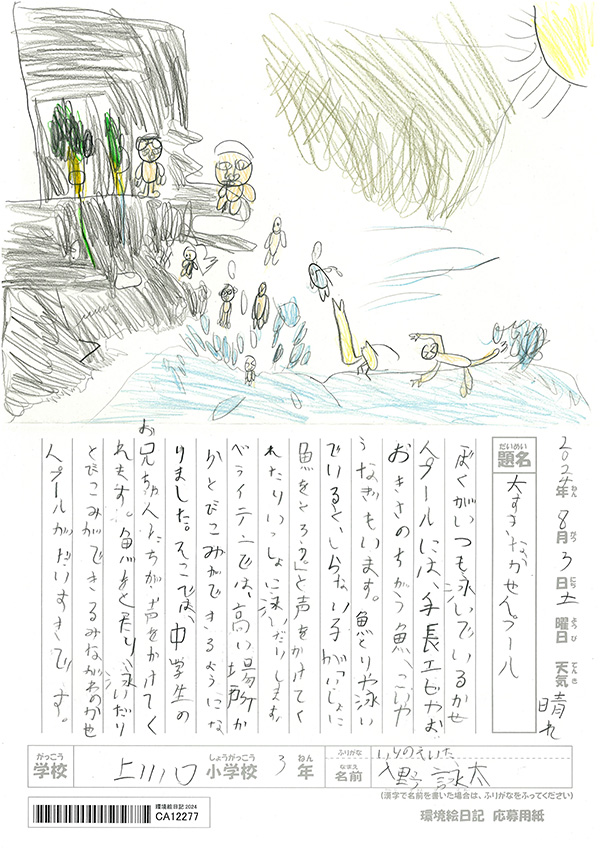 2024年ねん 8月がつ 3日にち 土曜日ようび 天気てんき 晴れ
だいめい
題名
大すきなかせんプール
ぼくがいつも泳いでいるかせ
んプールには、手長エビやお
おきさのちがう魚、こいや
うなぎもいます。魚とりや泳い
でいると、しらない子が「いっしょに
魚をとろう。」と声をかけてく
れたりいっしょに泳いだりします。
ベライテンでは、高い場所か
らとびこみができるようにな
りました。そこでは、中学生の
お兄ちゃんたちが声をかけてく
れます。魚をとったり、泳いだり
とびこみができるみながわのかせ
んプールがだいすきです。
がっこう
学校
上川口
しょうがっこう
小学校
3
ねん
年
ふりがな
いりのえいた
なまえ
名前
入野 詠太
(漢字で名前を書いた場合は、ふりがなをふってください)
環境絵日記2024
CA12277
環境絵日記 応募用紙